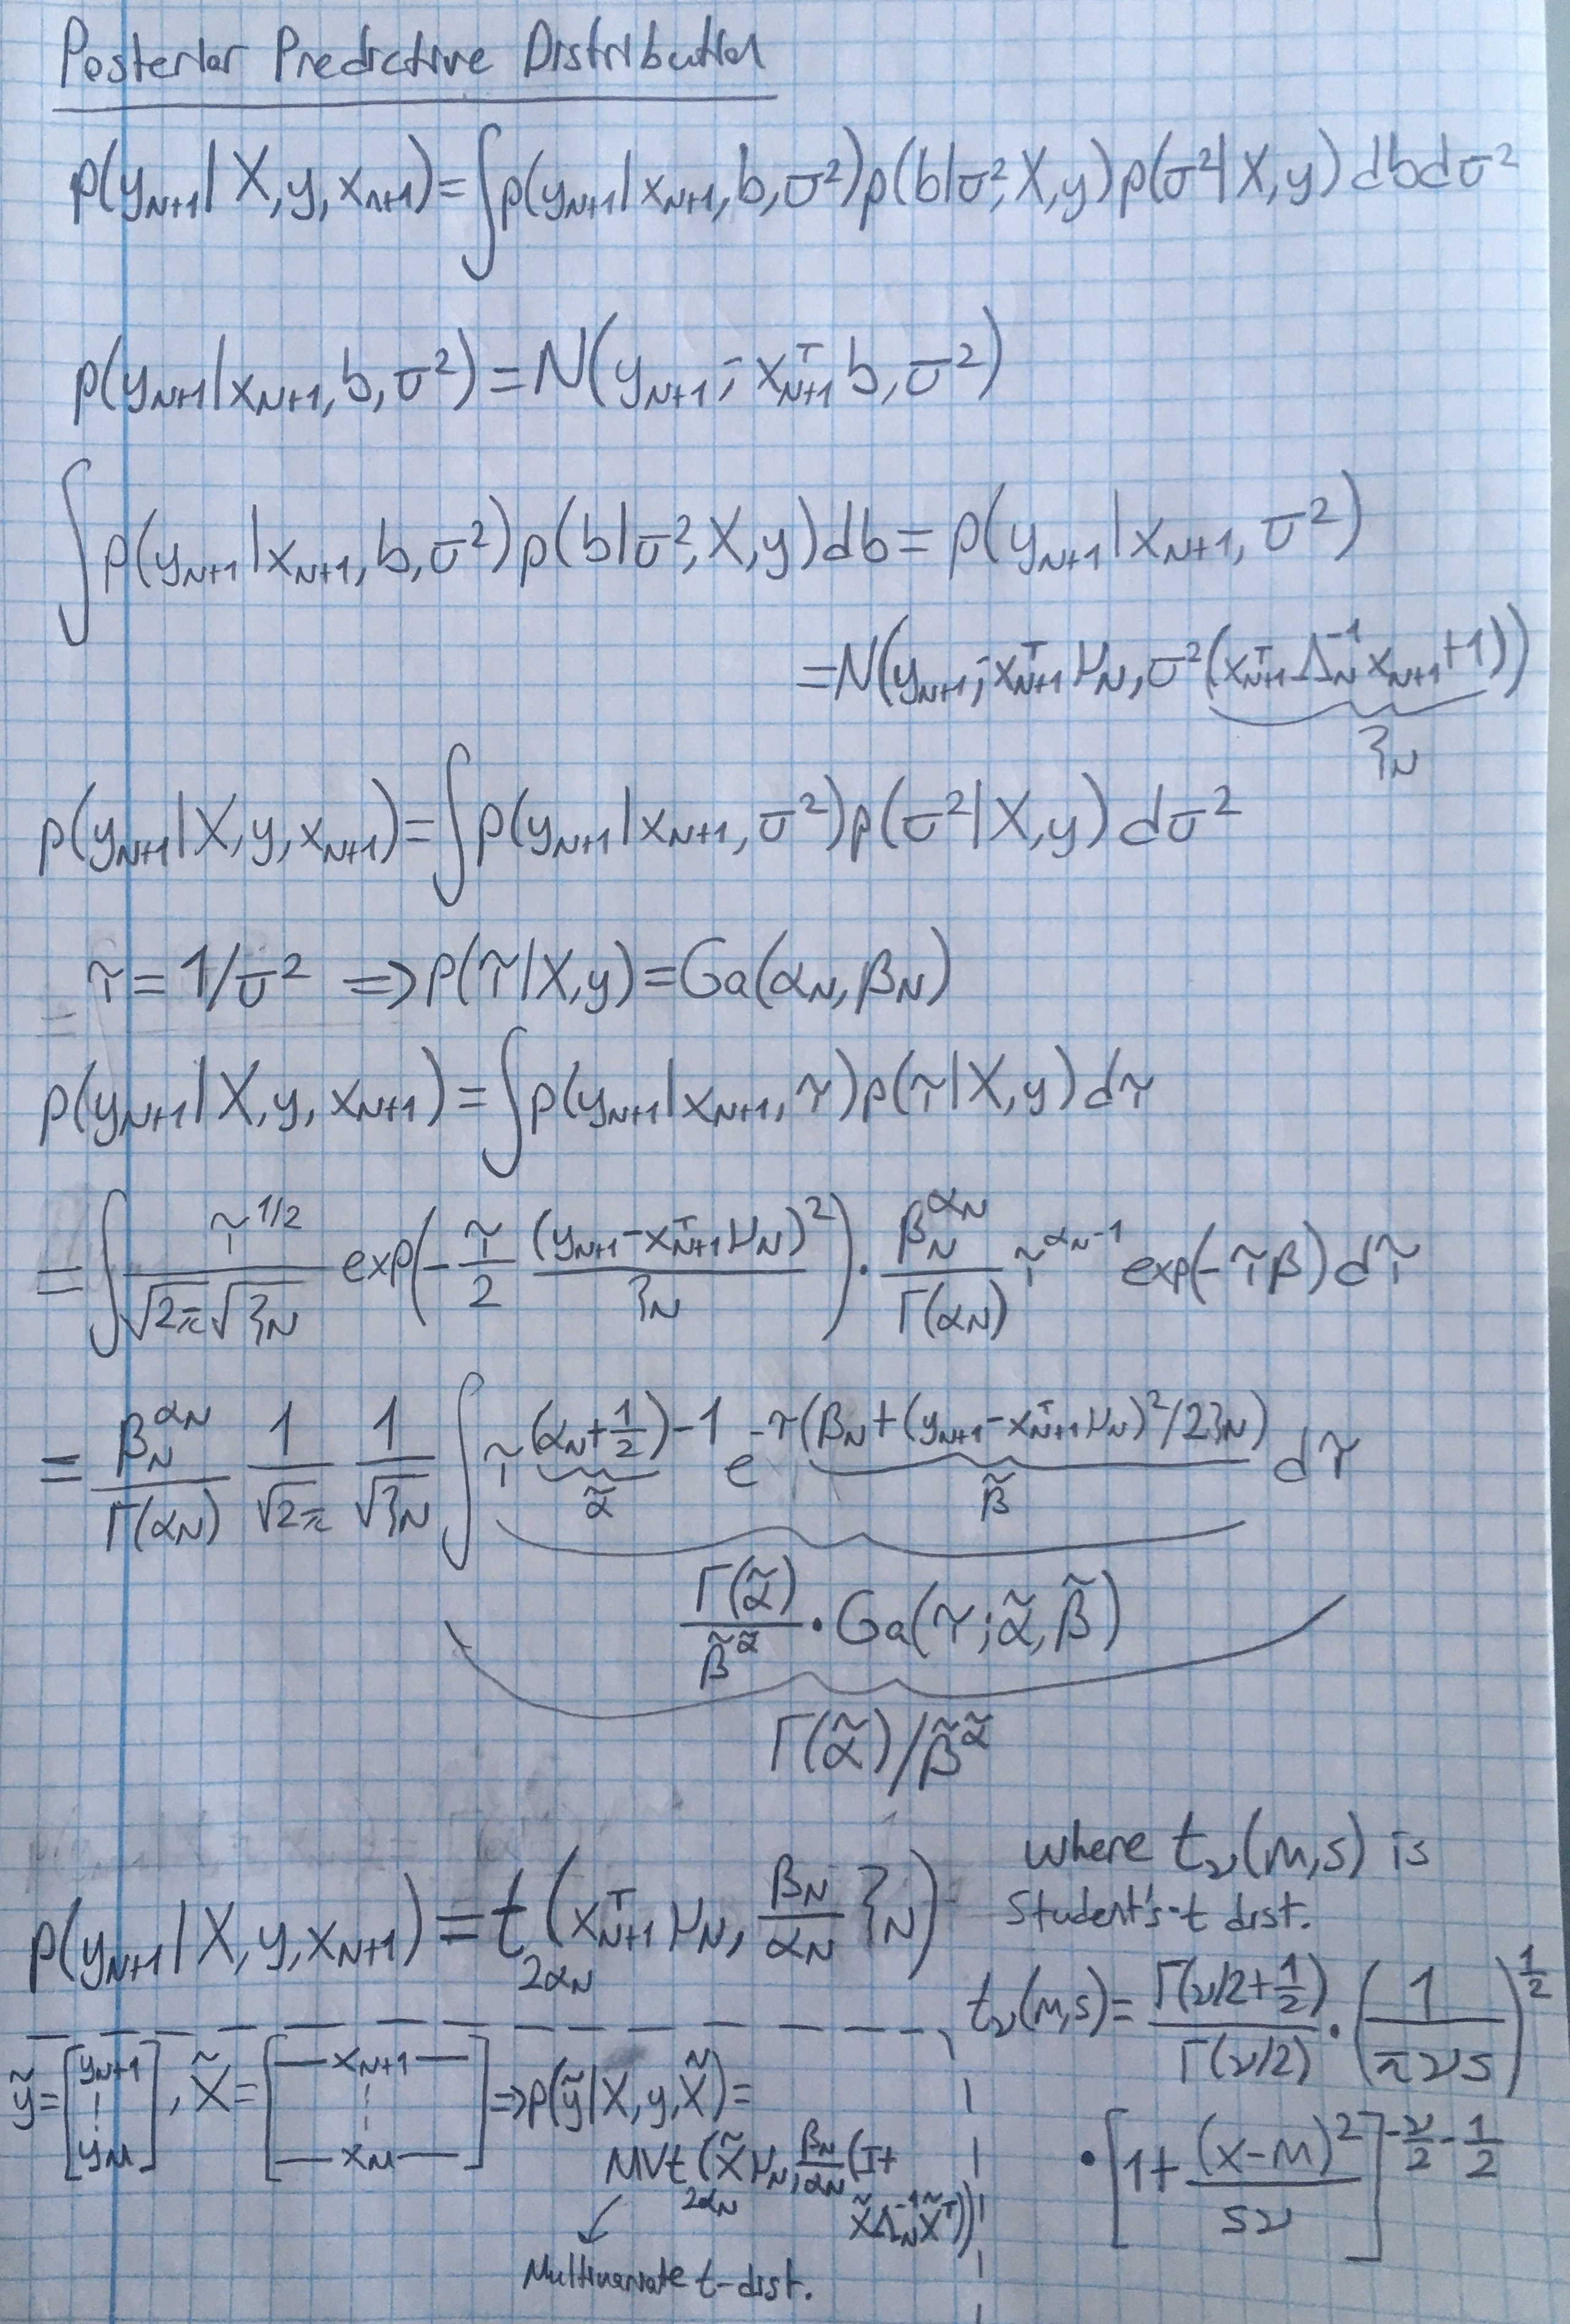 Posterior Predictive Distribution
p(y_{N+1}|X,y,x_{N+1})=∫p(y_{N+1}|x_{N+1},b,σ²)p(b|σ²,X,y)p(σ²|X,y)dbdσ²
p(y_{N+1}|x_{N+1},b,σ²)=N(y_{N+1};x_{N+1}^T b,σ²)
∫p(y_{N+1}|x_{N+1},b,σ²)p(b|σ²,X,y)db=p(y_{N+1}|x_{N+1},σ²)
=N(y_{N+1};x_{N+1}^T μ_N,σ²(x_{N+1}^T Λ_N^{-1} x_{N+1}+1))
ξ_N
p(y_{N+1}|X,y,x_{N+1})=∫p(y_{N+1}|x_{N+1},σ²)p(σ²|X,y)dσ²
τ=1/σ² ⇒p(τ|X,y)=Ga(α_N,β_N)
p(y_{N+1}|X,y,x_{N+1})=∫p(y_{N+1}|x_{N+1},τ)p(τ|X,y)dτ
=∫ τ^{1/2}/(√2π √ξ_N) exp(-τ/2 (y_{N+1}-x_{N+1}^T μ_N)²/ξ_N)·β_N^{α_N}/Γ(α_N) τ^{α_N-1} exp(-τβ)dτ
=β_N^{α_N}/Γ(α_N) 1/√2π 1/√ξ_N ∫τ^{(α_N+1/2)-1} e^{-τ(β_N+(y_{N+1}-x_{N+1}^T μ_N)²/2ξ_N)} dτ
α̃ β̃
Γ(α̃)/β̃^α̃ · Ga(τ;α̃,β̃)
Γ(α̃)/β̃^α̃
p(y_{N+1}|X,y,x_{N+1})=t_{2α_N}(x_{N+1}^T μ_N, β_N/α_N ξ_N)
where t_ν(m,s) is
Student's-t dist.
t_ν(m,s)=Γ(ν/2+1/2)/Γ(ν/2)·(1/πνs)^{1/2}
·[1+(x-m)²/sν]^{-ν/2-1/2}
ỹ=[y_{N+1} ⋮ y_M], X̃=[—x_{N+1}— ⋮ —x_M—]⇒p(ỹ|X,y,X̃)=
MVt_{2α_N}(X̃μ_N, β_N/α_N(I+
X̃Λ_N^{-1}X̃^T))
Multivariate t-dist.